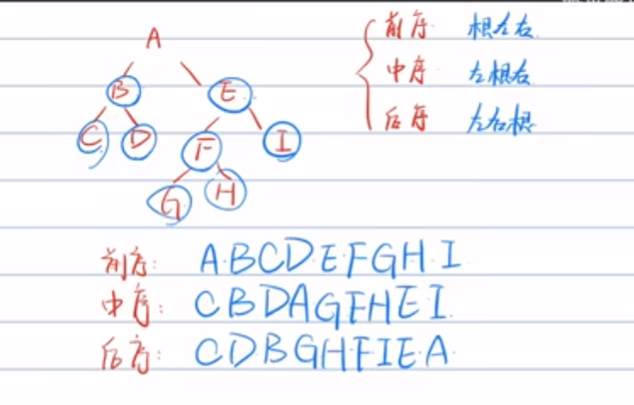 A
B E
C D F I
G H
前序 根左右
中序 左根右
后序 左右根
前序: A·BCD·E·FGH·I
中序: CBDAGFHEI.
后序: CDBGHFIE·A